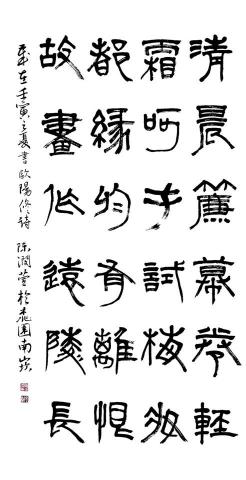 清晨簾幕卷輕
霜呵手試梅妝
都緣的有離恨
故畫作遠陵長
歲在壬寅之夏書歐陽修詩 陳潤萱於桃園南崁